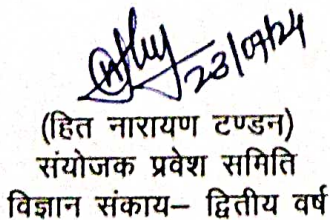 23/07/24
(हित नारायण टण्डन)
संयोजक प्रवेश समिति
विज्ञान संकाय– द्वितीय वर्ष